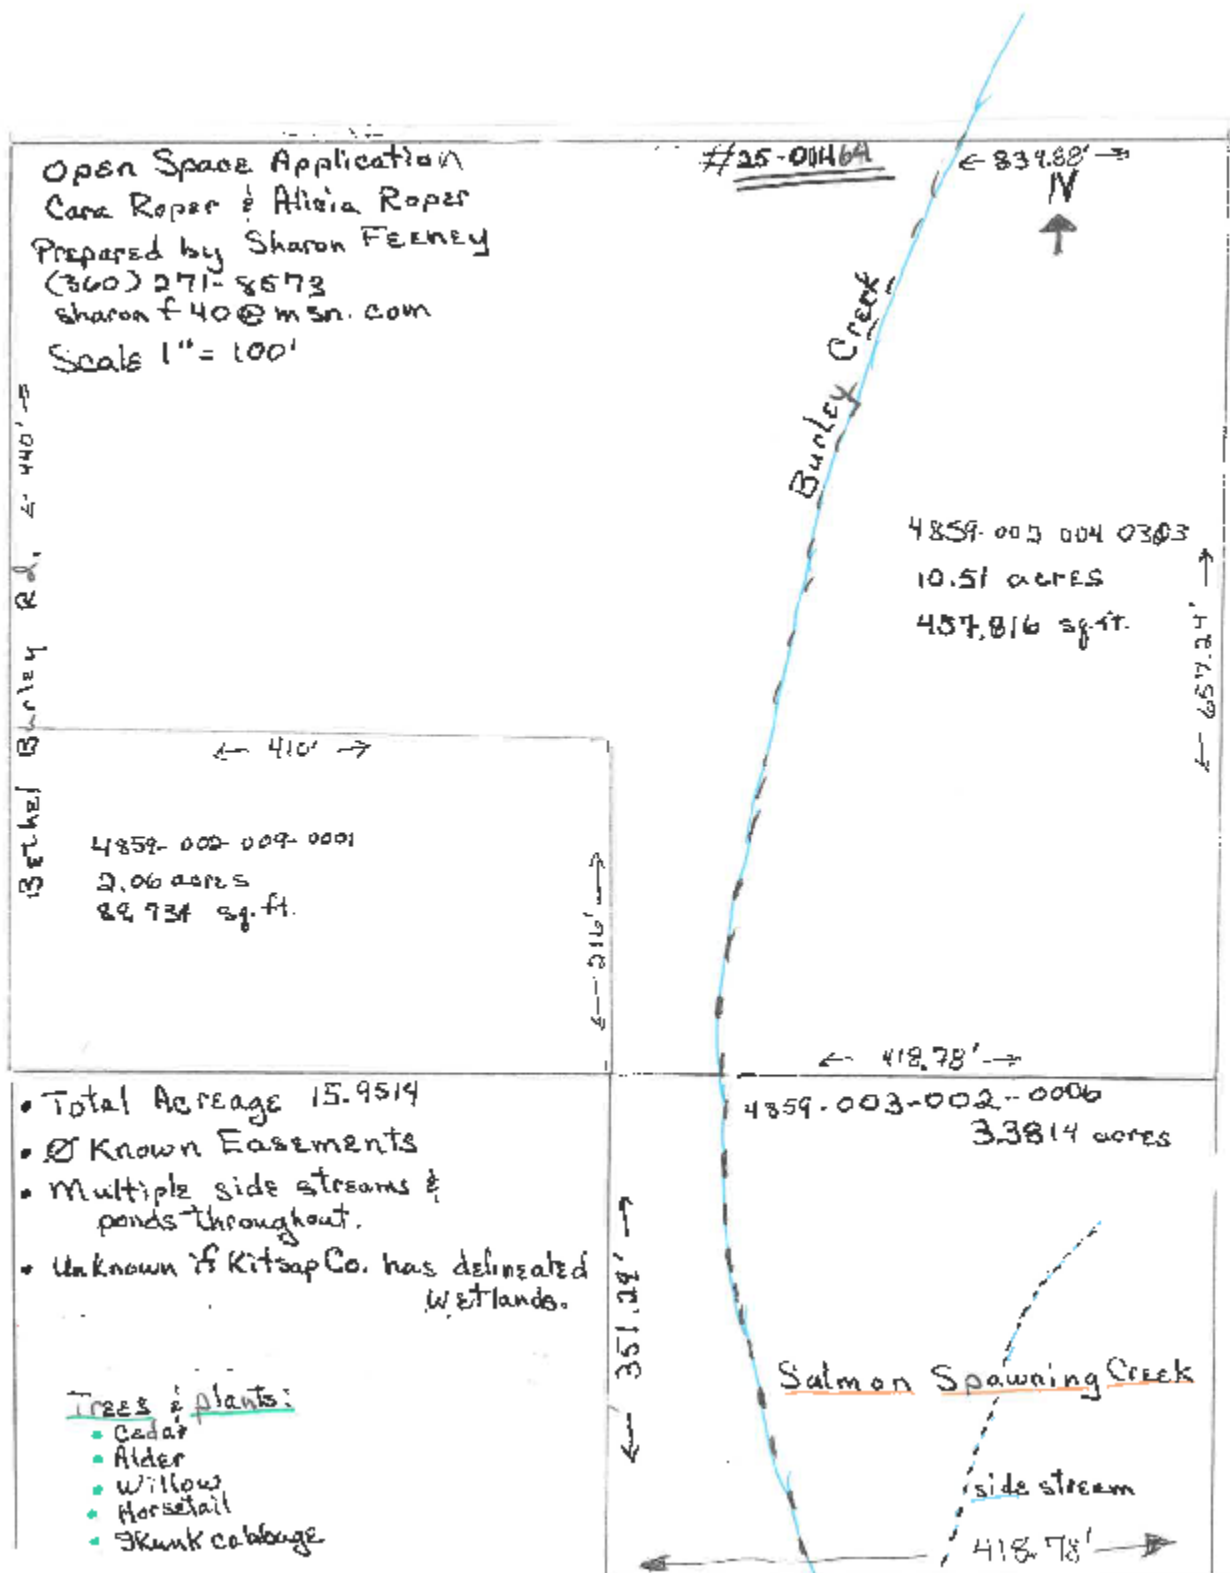 Open Space Application
Cara Roper & Alicia Roper
Prepared by Sharon Feeney
(360) 271-8573
sharonf40@msn.com
Scale 1" = 100'
#25-00464
← 839.88' →
N
Burley Creek
Bethel Burley Rd. ← 440' →
4859-002 004 0303
10.51 acres
457,816 sq.ft.
← 657.24' →
← 410' →
4859-002-009-0001
2.06 acres
89,734 sq.ft.
← 216' →
← 418.78' →
4859-003-002-0006
3.3814 acres
• Total Acreage 15.9514
• Ø Known Easements
• Multiple side streams &
ponds throughout.
• Unknown if Kitsap Co. has delineated
wetlands.
← 351.28' →
Trees & plants:
• Cedar
• Alder
• Willow
• Horsetail
• Skunk cabbage
Salmon Spawning Creek
side stream
418.78'